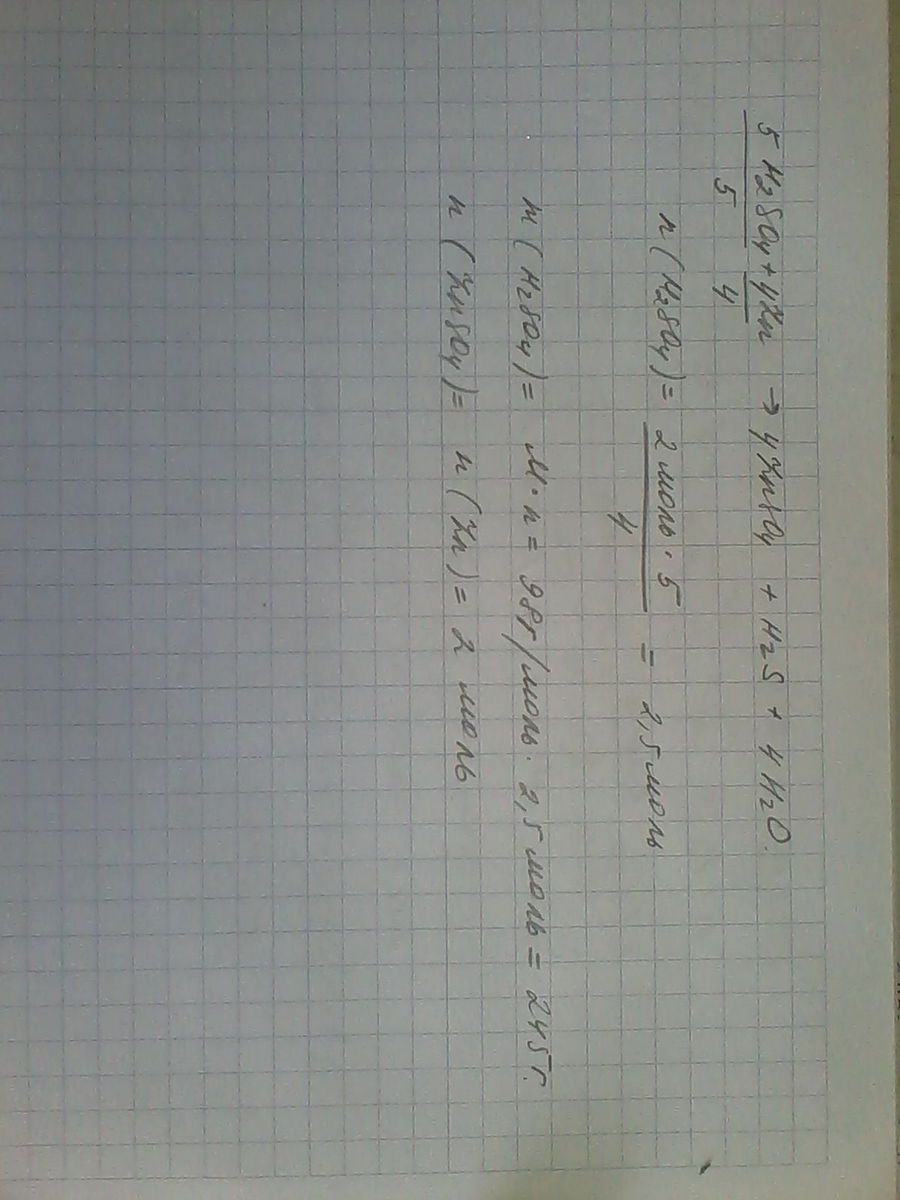 5 H2SO4 + 4Zn → 4ZnSO4 + H2S + 4H2O.
5 4
n (H2SO4) = 2 моль · 5 / 4 = 2,5 моль
m (H2SO4) = M · n = 98 г/моль · 2,5 моль = 245 г.
n (ZnSO4) = n (Zn) = 2 моль